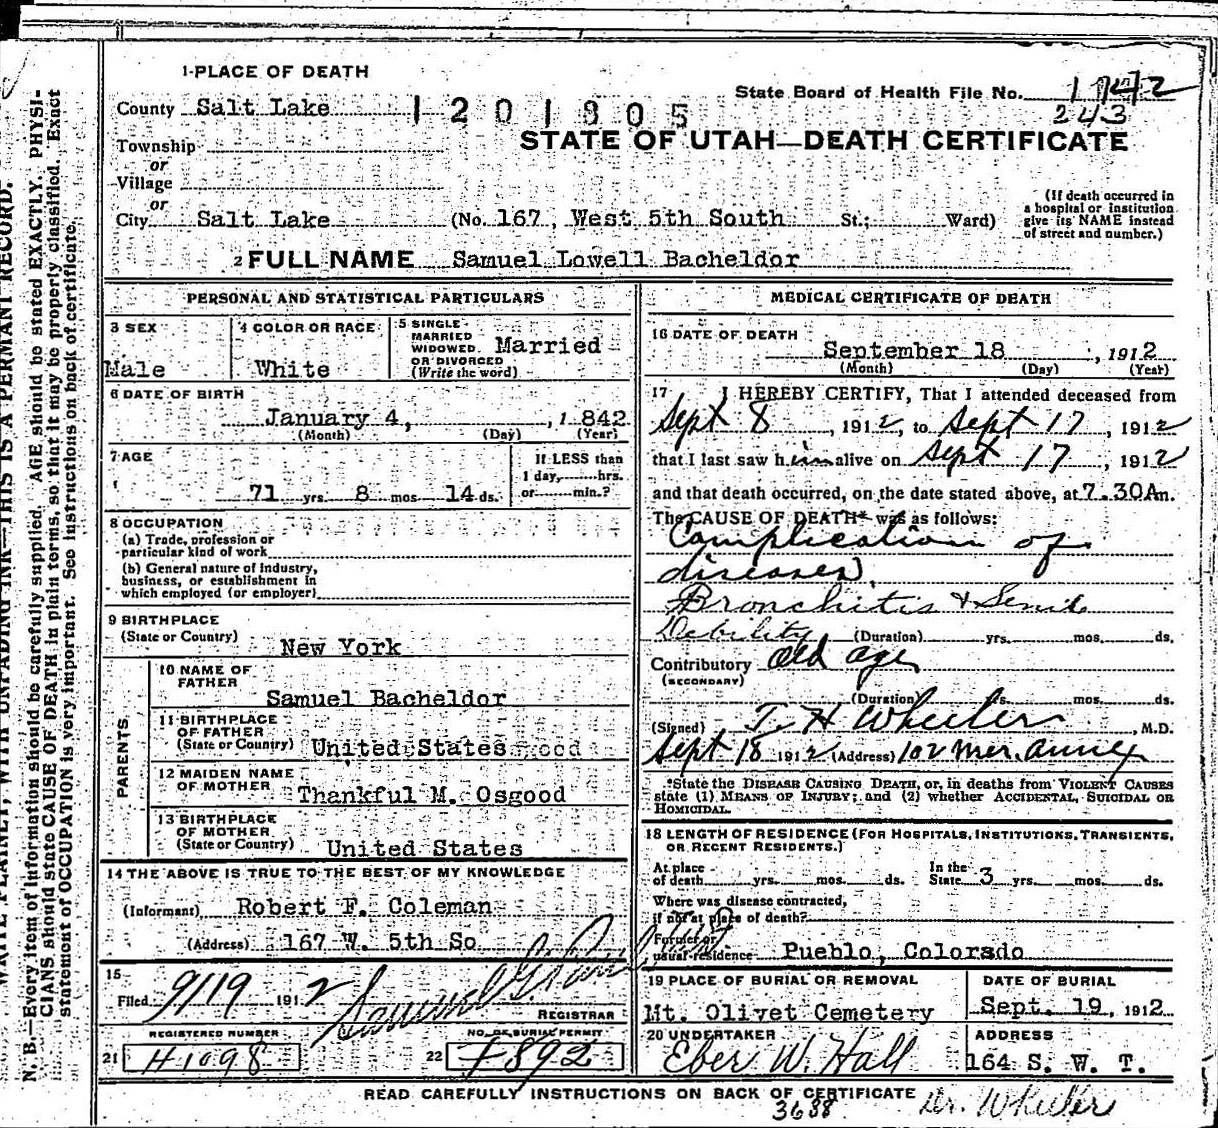 1-PLACE OF DEATH
County Salt Lake 1201305
State Board of Health File No. 1742
243
STATE OF UTAH—DEATH CERTIFICATE
Township
or
Village
or
City Salt Lake (No. 167, West 5th South St.; Ward)
(If death occurred in a hospital or institution give its NAME instead of street and number.)
2 FULL NAME Samuel Lowell Bacheldor
PERSONAL AND STATISTICAL PARTICULARS
3 SEX
Male
4 COLOR OR RACE
White
5 SINGLE
MARRIED
WIDOWED
OR DIVORCED
(Write the word)
Married
6 DATE OF BIRTH
January 4, , 1842
(Month) (Day) (Year)
7 AGE
71 yrs. 8 mos 14 ds.
If LESS than
1 day, hrs.
or min.?
8 OCCUPATION
(a) Trade, profession or
particular kind of work
(b) General nature of industry,
business, or establishment in
which employed (or employer)
9 BIRTHPLACE
(State or Country) New York
PARENTS
10 NAME OF
FATHER
Samuel Bacheldor
11 BIRTHPLACE
OF FATHER
(State or Country) United States
12 MAIDEN NAME
OF MOTHER
Thankful M. Osgood
13 BIRTHPLACE
OF MOTHER
(State or Country) United States
14 THE ABOVE IS TRUE TO THE BEST OF MY KNOWLEDGE
(Informant) Robert F. Coleman
(Address) 167 W. 5th So
15
Filed 9/19 1912
Samuel G.
REGISTRAR
REGISTERED NUMBER
21 H1098
NO. OF BURIAL PERMIT
22 F892
MEDICAL CERTIFICATE OF DEATH
16 DATE OF DEATH
September 18 , 1912
(Month) (Day) (Year)
17 I HEREBY CERTIFY, That I attended deceased from
Sept 8 , 1912, to Sept 17 , 1912
that I last saw him alive on Sept 17 , 1912
and that death occurred, on the date stated above, at 7.30Am.
The CAUSE OF DEATH* was as follows:
Complication of
diseases,
Bronchitis & Senile
Debility (Duration) yrs. mos. ds.
Contributory Old age
(SECONDARY)
(Duration) yrs. mos. ds.
(Signed) T. H Wheeler , M.D.
Sept 18 1912 (Address) 102 Mer. Annex
*State the DISEASE CAUSING DEATH, or, in deaths from VIOLENT CAUSES
state (1) MEANS OF INJURY; and (2) whether ACCIDENTAL, SUICIDAL OR
HOMICIDAL.
18 LENGTH OF RESIDENCE (FOR HOSPITALS, INSTITUTIONS, TRANSIENTS,
OR RECENT RESIDENTS.)
At place
of death yrs. mos. ds.
In the
State 3 yrs. mos. ds.
Where was disease contracted,
if not at place of death?
Former or
usual residence Pueblo, Colorado
19 PLACE OF BURIAL OR REMOVAL
Mt. Olivet Cemetery
DATE OF BURIAL
Sept. 19, 1912
20 UNDERTAKER
Eber W. Hall
ADDRESS
164 S. W. T.
READ CAREFULLY INSTRUCTIONS ON BACK OF CERTIFICATE
3688 Dr. Wheeler
WRITE PLAINLY, WITH UNFADING INK—THIS IS A PERMANT RECORD.
N. B.—Every item of information should be carefully supplied. AGE should be stated EXACTLY. PHYSI-
CIANS should state CAUSE OF DEATH in plain terms, so that it may be properly classified. Exact
statement of OCCUPATION is very important. See instructions on back of certificate.